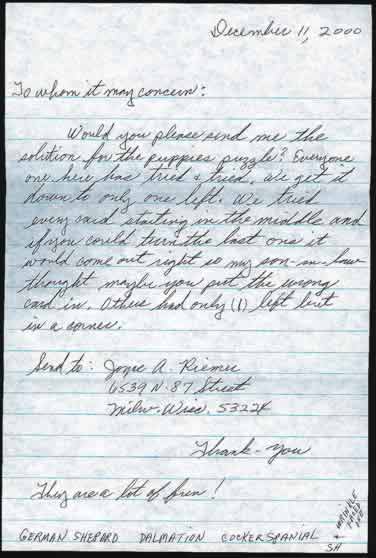 December 11, 2000
To whom it may concern:
Would you please send me the
solution for the puppies puzzle? Everyone
one here has tried & tried. We get it
down to only one left. We tried
every card starting in the middle and
if you could turn the last one it
would come out right so my son-in-law
thought maybe you put the wrong
card in. Others had only (1) left but
in a corner.
Send to: Joyce A. Riemer
6539 N. 87 Street
Milw. Wisc. 53224
Thank-you
They are a lot of fun!
GERMAN SHEPARD DALMATION COCKERSPANIAL
SH